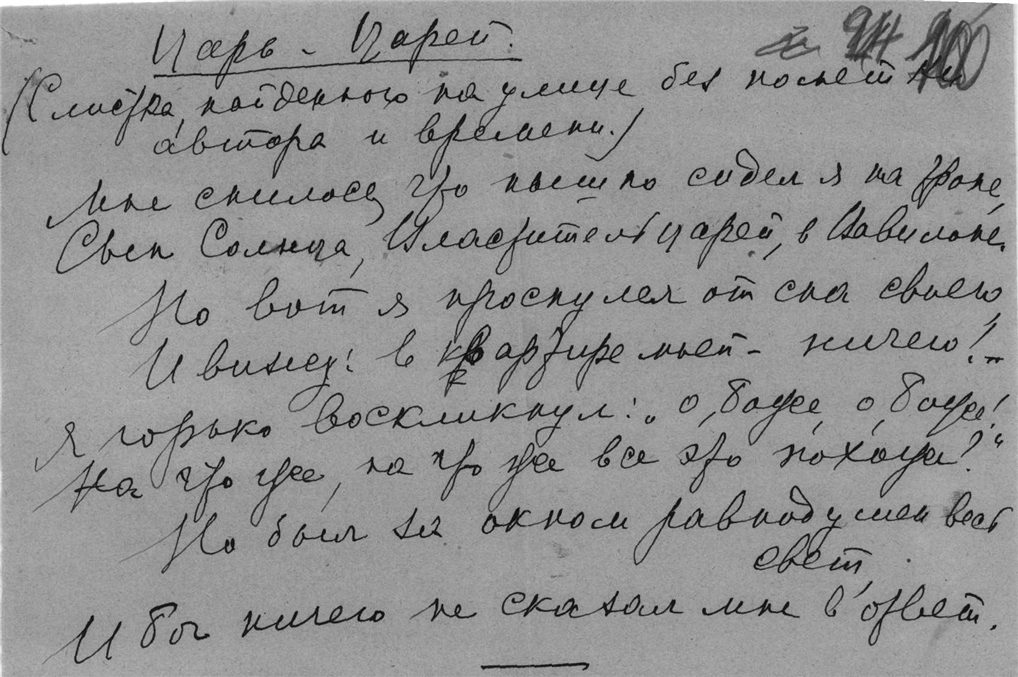 Царь - Царей.
(С листка, найденного на улице без помет
автора и времени.)
Мне снилось, что пышно сидел я на троне,
Сын Солнца, Властитель царей, в Вавилоне.
Но вот я проснулся от сна своего,
И вижу: в квартире моей - ничего! -
Я горько воскликнул: „о, боже, о боже!
На что же, на что же все это похоже?"
Но был за окном равнодушен весь
свет,
И бог ничего не сказал мне в ответ.